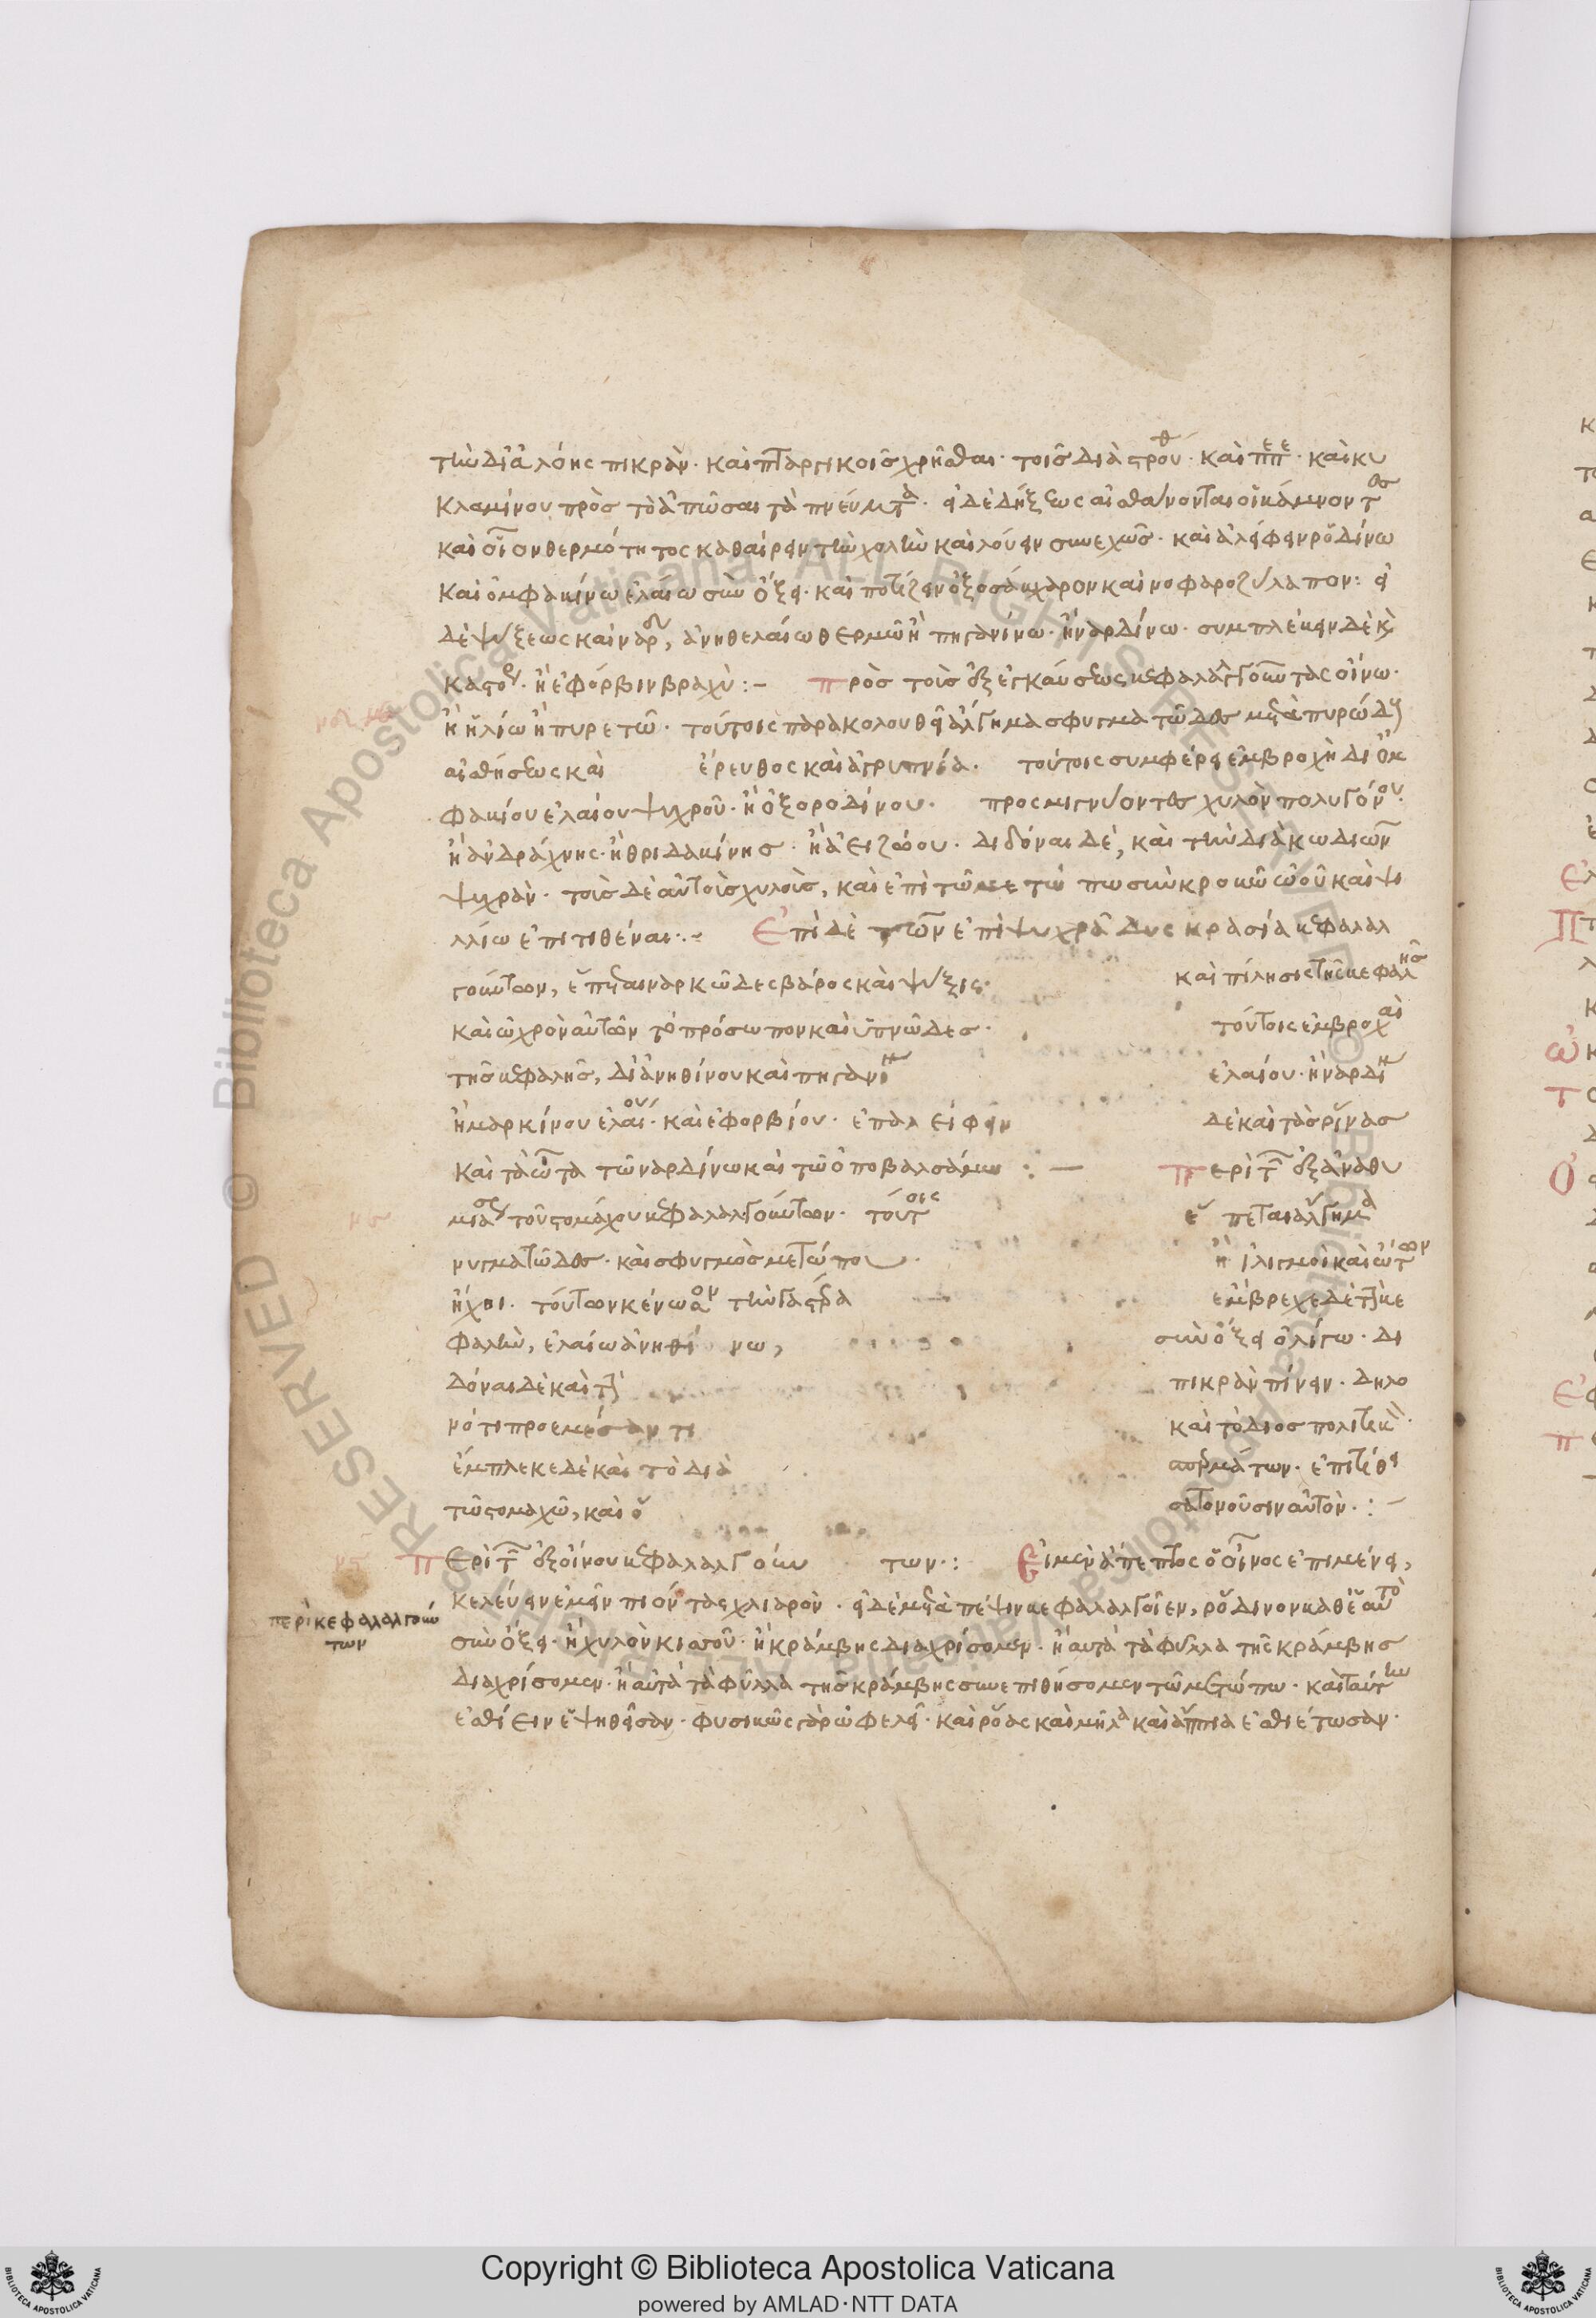 τὴν δι' ἀλόης πικράν · καὶ πταρμικοῖς χρῆσθαι · τοῖς διὰ στρου^θ · καὶ πεπε · καὶ κυ
κλαμίνου πρὸς τὸ ἀπῶσαι τὰ πνεύματα · εἰ δὲ δήξεως αἰσθάνονται οἱ κάμνοντες
καὶ οἷον θερμότητος καθαίρειν τὴν χολὴν καὶ λούειν συνεχῶς · καὶ ἀλείφειν ῥοδίνω
καὶ ὀμφακίνω ἐλαίω σὺν ὄξει · καὶ ποτίζειν ὀξοσάκχαρον καὶ νοφαροζούλαπον : εἰ
δὲ ψύξεως καὶ ναρ, ἀνηθελαίω θερμῶ ἢ πηγανίνω · ἢ ναρδίνω · συμπλέκειν δὲ καὶ
καστο · ἢ εφόρβιν βραχὺ :–  πρὸς τοὺς ἐξ ἐγκαύσεως κεφαλαλγοῦντας οἴνω ·
ἢ ἡλίω ἢ πυρετῶ · τούτοις παρακολουθεῖ ἄλγημα σφυγματῶδες μετὰ πυρώδους
αἰσθήσεως καὶ ἔρευθος καὶ ἀγρυπνία · τούτοις συμφέρει ἐμβροχὴ δι' ὀμ
φακίου ἐλαίου ψυχροῦ · ἢ ὀξοροδίνου · προσμιγνύοντες χυλὸν πολυγόνου ·
ἢ ἀνδράχνης · ἢ θριδακίνης · ἢ ἀειζώου · διδόναι δὲ, καὶ τὴν διὰ κωδιῶν
ψυχράν · τοῖς δὲ αὐτοῖς χυλοῖς, καὶ ἐπὶ τῶ μετώπω σὺν κρόκω ὠοῦ καὶ ψι
λλίω ἐπιτιθέναι :–  Ἐπὶ δὲ τῶν ἐπὶ ψυχρᾶ δυσκρασία κεφαλαλ
γούντων, ἕπεται ναρκῶδες βάρος καὶ ψύξις · καὶ πίλησις τῆς κεφαλῆς
καὶ ὠχρὸν αὐτῶν τὸ πρόσωπον καὶ ὑπνῶδες · τούτοις ἐμβροχαὶ
τῆς κεφαλῆς, δι' ἀνηθίνου καὶ πηγανί ἐλαίου · ἢ ναρδί
ἢ μαρκίνου ἐλαίου · καὶ εφορβίου · ἐπαλείφειν δὲ καὶ τὰς ῥῖνας
καὶ τὰ ὦτα τῶ ναρδίνω καὶ τῶ ὀποβαλσάμω : —  περὶ τῶν ἐξ ἀναθυ
μιάσεως τοῦ στομάχου κεφαλαλγούντων · τούτοις ἕπεται ἄλγημα
νυγματῶδες · καὶ σφυγμὸς μετώπου · ἢ ἰλιγμοὶ καὶ ὤτων
ἦχοι · τούτων κένωσον τὴν γαστέρα ἔμβρεχε δὲ τὴν κε
φαλὴν, ἐλαίω ἀνηθίνω, σὺν ὄξει ὀλίγω · δι
δόναι δὲ καὶ τὴν πικρὰν πίνειν · δηλο
νότι προεμέσαντι καὶ τὸ διοσπολιτικὸν ·
ἔμπλεκε δὲ καὶ τὸ διὰ σπερμάτων · ἐπιτίθει
τῶ στομάχω, καὶ ὅσα τονοῦσιν αὐτὸν · : –
Περὶ τῶν ἐξ οἴνου κεφαλαλγούντων · : Εἰ μὲν ἄπεπτος ὁ οἶνος ἐπιμένει,
κελεύειν ἐμεῖν πιόντας χλιαρόν · εἰ δὲ μετὰ πέψιν κεφαλαλγοῖεν, ῥόδινον καθ' ἑαυτὸ
σὺν ὄξει · ἢ χυλὸν κισσοῦ · ἢ κράμβης διαχρίσομεν · ἢ αὐτὰ τὰ φύλλα τῆς κράμβης
διαχρίσομεν · ἢ αὐτὰ τὰ φύλλα τῆς κράμβης συνεπιθήσομεν τῶ μετώπω · καὶ ταύτην
ἐσθίειν ἑψηθεῖσαν · φυσικῶς γὰρ ὠφελεῖ · καὶ ῥόας καὶ μῆλα καὶ ἄππια ἐσθιέτωσαν ·
περὶ κεφαλαλγούν
των
© Biblioteca Apostolica Vaticana ALL RIGHTS RESERVED
Copyright © Biblioteca Apostolica Vaticana
powered by AMLAD·NTT DATA
BIBLIOTECA APOSTOLICA VATICANA
BIBLIOTECA APOSTOLICA VATICANA